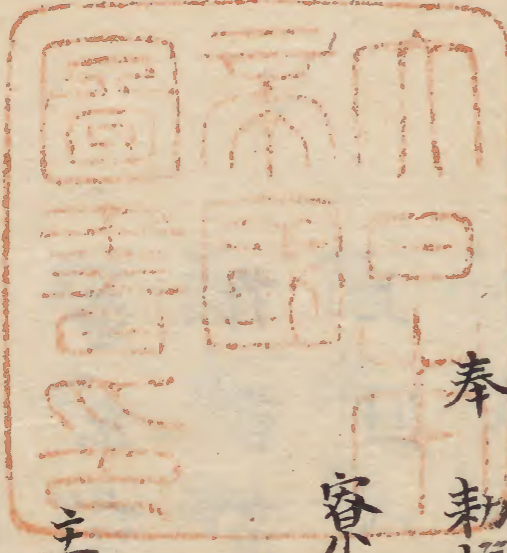 大日本
帝國
圖書印
奉 勅
寮
主